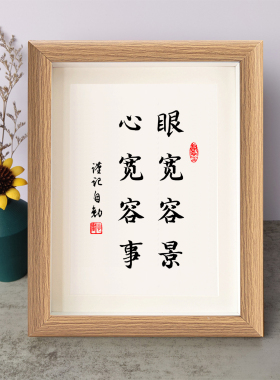 眼宽容景
心宽容事
谨记自勉